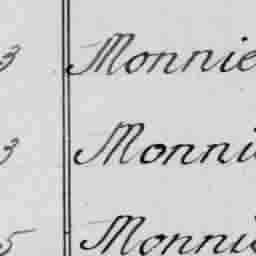 3 Monnie
3 Monni
5 Monni